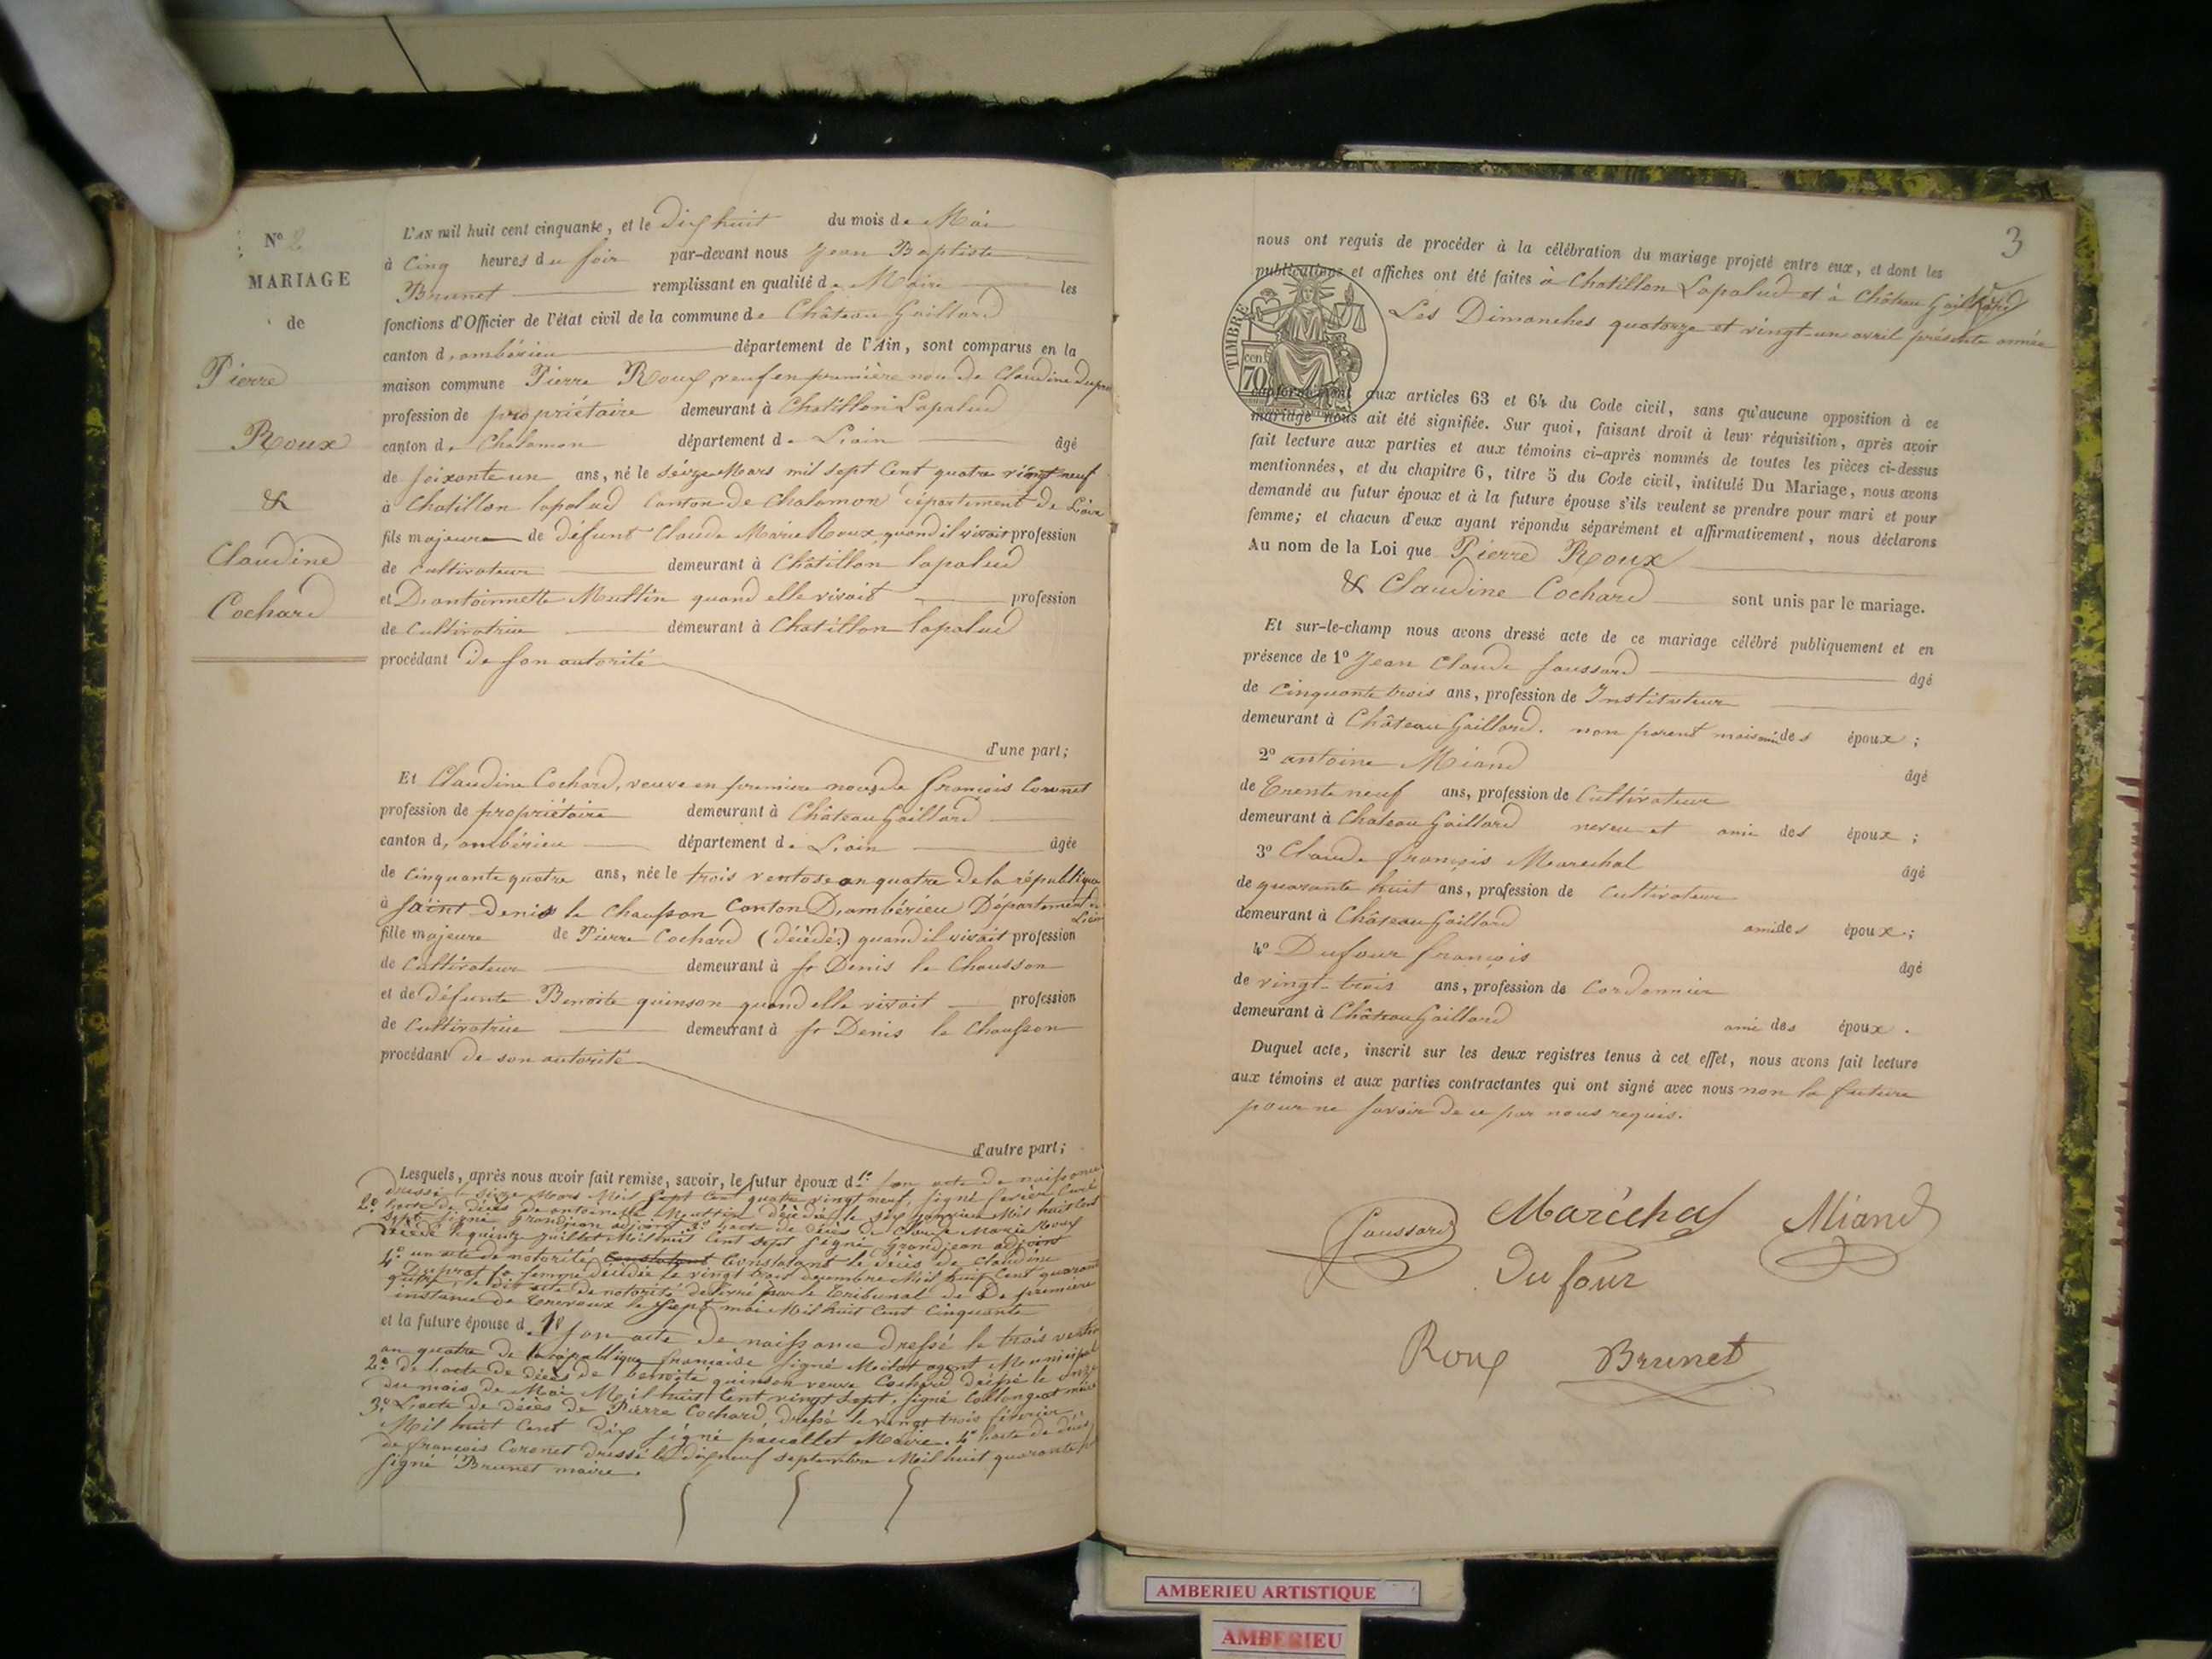 N° 2
MARIAGE
de
Pierre
Roux
&
Claudine
Cochard
L'AN mil huit cent cinquante, et le dix huit du mois de Mai
à Cinq heures du soir par-devant nous Jean Baptiste
Brunet remplissant en qualité de Maire les
fonctions d'Officier de l'état civil de la commune de Château Gaillard
canton d, ambérieu département de l'Ain, sont comparus en la
maison commune Pierre Roux, veuf en première noce de Claudine Dupra
profession de propriétaire demeurant à Chatillon Lapalud
canton de Chalamon département de L'ain âgé
de soixante un ans, né le seize Mars mil sept Cent quatre vingt neuf
à Chatillon lapalud Canton de Chalamon département de L'ain
fils majeur de défunt Claude Marie Roux, quand il vivait profession
de Cultivateur demeurant à Châtillon lapalud
et D'antoinnette Muttin quand elle vivait profession
de Cultivatrice demeurant à Chatillon lapalud
procédant de son autorité
d'une part;
Et Claudine Cochard, veuve en premiere noce, de françois Coronet
profession de propriétaire demeurant à Château Gaillard
canton d, ambérieu département de L'ain âgée
de Cinquante quatre ans, née le trois ventose an quatre de la république
à Saint Denis le Chausson Canton D'ambérieu Département de L'ain
fille majeure de Pierre Cochard (décédé) quand il vivait profession
de Cultivateur demeurant à St Denis le Chausson
et de défunte Benoite quinson quand elle vivait profession
de Cultivatrice demeurant à St Denis le Chausson
procédant de son autorité
d'autre part;
Lesquels, après nous avoir fait remise, savoir, le futur époux d 1° son acte de naissance
dressé le seize Mars Mil sept Cent quatre vingt neuf, signé Curé
2° l'acte de décès de antoinette Muttin décédée le six janvier Mil huit Cent
sept signé Grandjean adjoint 3° l'acte de décès de Claude Marie Roux
décédé le quinze juillet Mil huit Cent sept signé Grandjean adjoint
4° un acte de notorité Constatant Constatant le décès de Claudine
Duprat sa femme décédée le vingt trois décembre Mil huit Cent quarante
quatre, le dit acte de notorité délivré par le tribunal de De première
instance de Trevoux le sept mai Mil huit Cent Cinquante
et la future épouse d 1° son acte de naissance dressé le trois ventose
an quatre de la république française signé agent Municipal
2° de l'acte de décès de benoite quinson veuve Cochard dressé le onze
du mois de Mai Mil huit Cent vingt sept, signé Collongeat maire
3° L'acte de décès de Pierre Cochard, dressé le vingt trois février
Mil huit Cent dix signé paccallet Maire. 4° l'acte de décès
de françois Coronet dressé le dix neuf septembre Mil huit quarante
signé Brunet maire.
3
nous ont requis de procéder à la célébration du mariage projeté entre eux, et dont les
publications et affiches ont été faites à Chatillon Lapalud et à Château Gaillard
Les Dimanches quatorze et vingt-un avril présente année
TIMBRE
70
conformément aux articles 63 et 64 du Code civil, sans qu'aucune opposition à ce
mariage nous ait été signifiée. Sur quoi, faisant droit à leur réquisition, après avoir
fait lecture aux parties et aux témoins ci-après nommés de toutes les pièces ci-dessus
mentionnées, et du chapitre 6, titre 5 du Code civil, intitulé Du Mariage, nous avons
demandé au futur époux et à la future épouse s'ils veulent se prendre pour mari et pour
femme; et chacun d'eux ayant répondu séparément et affirmativement, nous déclarons
Au nom de la Loi que Pierre Roux
& Claudine Cochard sont unis par le mariage.
Et sur-le-champ nous avons dressé acte de ce mariage célébré publiquement et en
présence de 1° Jean Claude Joussard âgé
de Cinquante trois ans, profession de Instituteur
demeurant à Château Gaillard. non parent mais ami des époux;
2° antoine Miand âgé
de Trente neuf ans, profession de Cultivateur
demeurant à Chateau Gaillard neveu et ami des époux;
3° Claude françois Marechal âgé
de quarante huit ans, profession de Cultivateur
demeurant à Château Gaillard ami des époux;
4° Dufour françois âgé
de vingt-trois ans, profession de Cordonnier
demeurant à Château Gaillard ami des époux.
Duquel acte, inscrit sur les deux registres tenus à cet effet, nous avons fait lecture
aux témoins et aux parties contractantes qui ont signé avec nous non la future
pour ne savoir de ce par nous requis.
Joussard Maréchal Miand
Dufour
Roux Brunet
AMBERIEU ARTISTIQUE
AMBERIEU